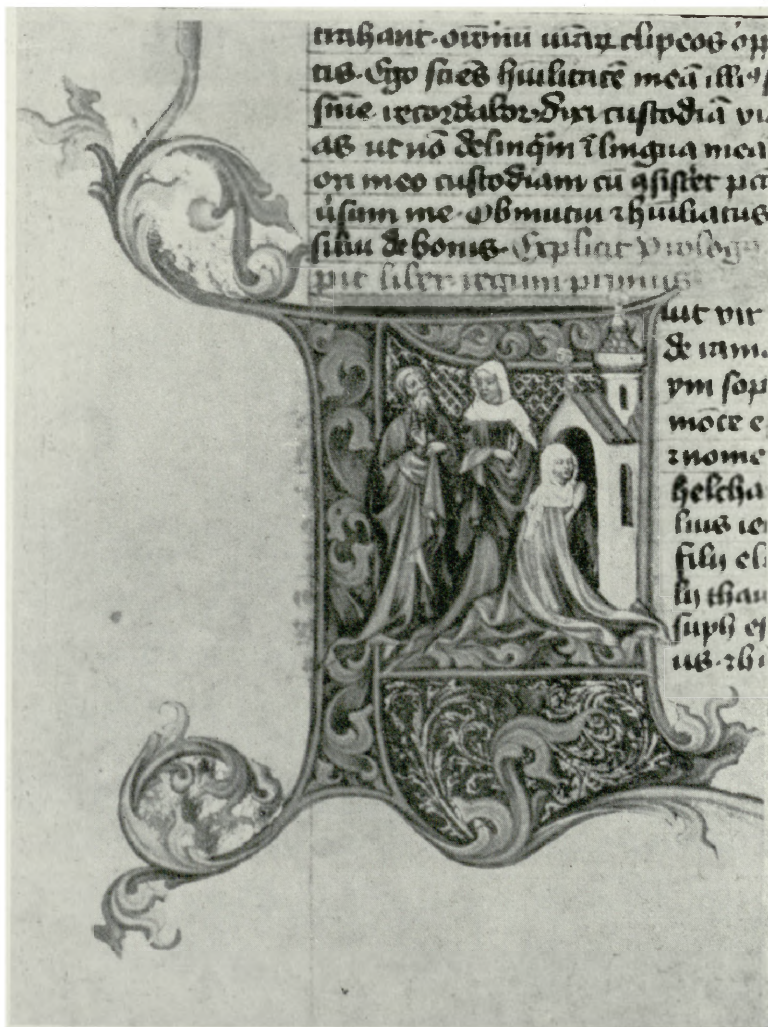 trahant. om̄niū uiarꝝ clipeos opp
tis. Ego sciēs hūilitatē meā illiꝰ
sn̄ie. recordabor. Dixi custodiā vi
as ut nō delinq̄m ī lingua mea
ori meo custodiam cū ꝯsist̄et pcc̄
ūsum me. Obmutui ⁊ hūiliatus
silui de bonis. Explicit Prologꝰ
pit liber regum primus
uit vir
de rama
ym sop
mōte e
⁊ nome
helcha
lius ie
filij el
lij thau
suph ef
us. ⁊ hi